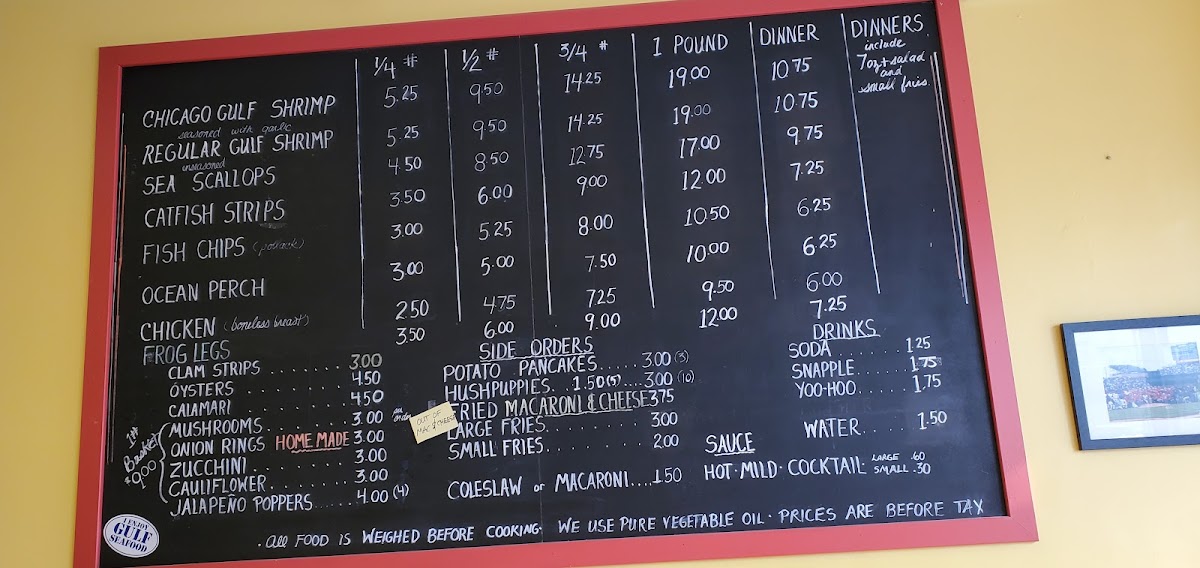 1/4 # 1/2 # 3/4 # 1 POUND DINNER DINNERS
include
7oz + salad
and
small fries.
CHICAGO GULF SHRIMP 5.25 9.50 14.25 19.00 10.75
seasoned with garlic
REGULAR GULF SHRIMP 5.25 9.50 14.25 19.00 10.75
unseasoned
SEA SCALLOPS 4.50 8.50 12.75 17.00 9.75
CATFISH STRIPS 3.50 6.00 9.00 12.00 7.25
FISH CHIPS (pollack) 3.00 5.25 8.00 10.50 6.25
OCEAN PERCH 3.00 5.00 7.50 10.00 6.25
CHICKEN (boneless breast) 2.50 4.75 7.25 9.50 6.00
FROG LEGS 3.50 6.00 9.00 12.00 7.25
CLAM STRIPS ........ 3.00
OYSTERS ........ 4.50
CALAMARI 4.50
MUSHROOMS ........ 3.00 an order
ONION RINGS HOME MADE 3.00
ZUCCHINI ........ 3.00
CAULIFLOWER ........ 3.00
JALAPEÑO POPPERS ...... 4.00 (4)
Basket
9.00
SIDE ORDERS
POTATO PANCAKES..... 3.00 (3)
HUSHPUPPIES... 1.50 (5).... 3.00 (10)
FRIED MACARONI & CHEESE 3.75
OUT OF
MAC & CHEESE
LARGE FRIES...... 3.00
SMALL FRIES...... 2.00
COLESLAW or MACARONI.... 1.50
DRINKS
SODA ........ 1.25
SNAPPLE ...... 1.75
YOO-HOO ...... 1.75
WATER.... 1.50
SAUCE
HOT · MILD · COCKTAIL LARGE .60
SMALL .30
I ENJOY
GULF
SEAFOOD
· All FOOD IS WEIGHED BEFORE COOKING · WE USE PURE VEGETABLE OIL · PRICES ARE BEFORE TAX